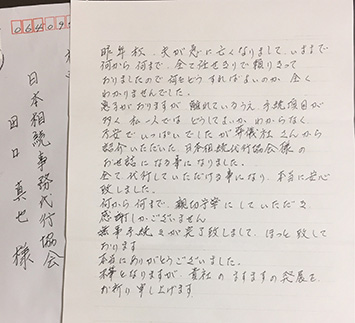 064095
日本相続事務代行協会
田口 真也 様
昨年秋、夫が急に亡くなりまして、いままで
何から何まで、全て任せきりで頼りきって
おりましたので何をどうすればよいのか、全く
わかりませんでした。
息子がおりますが離れているうえ、手続項目が
多く私一人では、どうしてよいか、わからなく、
不安でいっぱいでしたが葬儀社さんから
紹介いただいた、日本相続代行協会様の
お世話になる事になりました。
全て、代行していただける事になり、本当に安心
致しました。
何から何まで、親切丁寧にしていただき、
感謝しかございません
無事手続きが完了致しまして、ほっと致して
おります
本当にありがとうございました。
末筆となりますが、貴社のますますの発展を、
お祈り申し上げます。